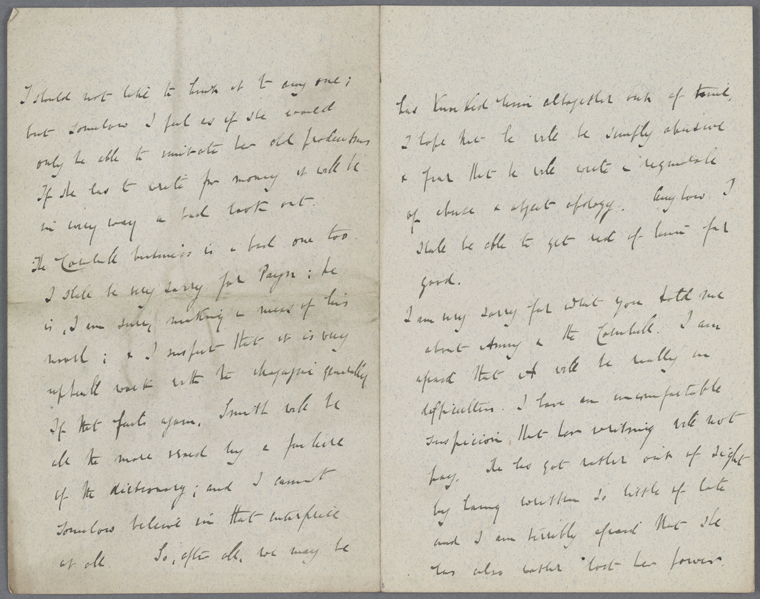 I should not like to hint it to any one;
but somehow I feel as if she would
only be able to imitate her old productions
If she has to write for money it will be
in every way a bad look out.
The Cornhill business is a bad one too.
I shall be very sorry for Payn: he
is, I am sure, making a mess of his
work; & I suspect that it is very
uphill work with the magazine generally
If that fails again, Smith will be
all the more vexed by a failure
of the dictionary; and I cannot
somehow believe in that enterprise
at all. So, after all, we may be
has knocked him altogether out of time.
I hope that he will be simply abusive
& fear that he will write a
of abuse & abject apology. Anyhow I
shall be able to get rid of him for
good.
I am very sorry for what you told me
about Anny & the Cornhill. I am
afraid that A will be really in
difficulties. I have an uncomfortable
suspicion that her writing will not
pay. She has got rather out of sight
by having written so little of late
and I am terribly afraid that she
has also rather lost her power.